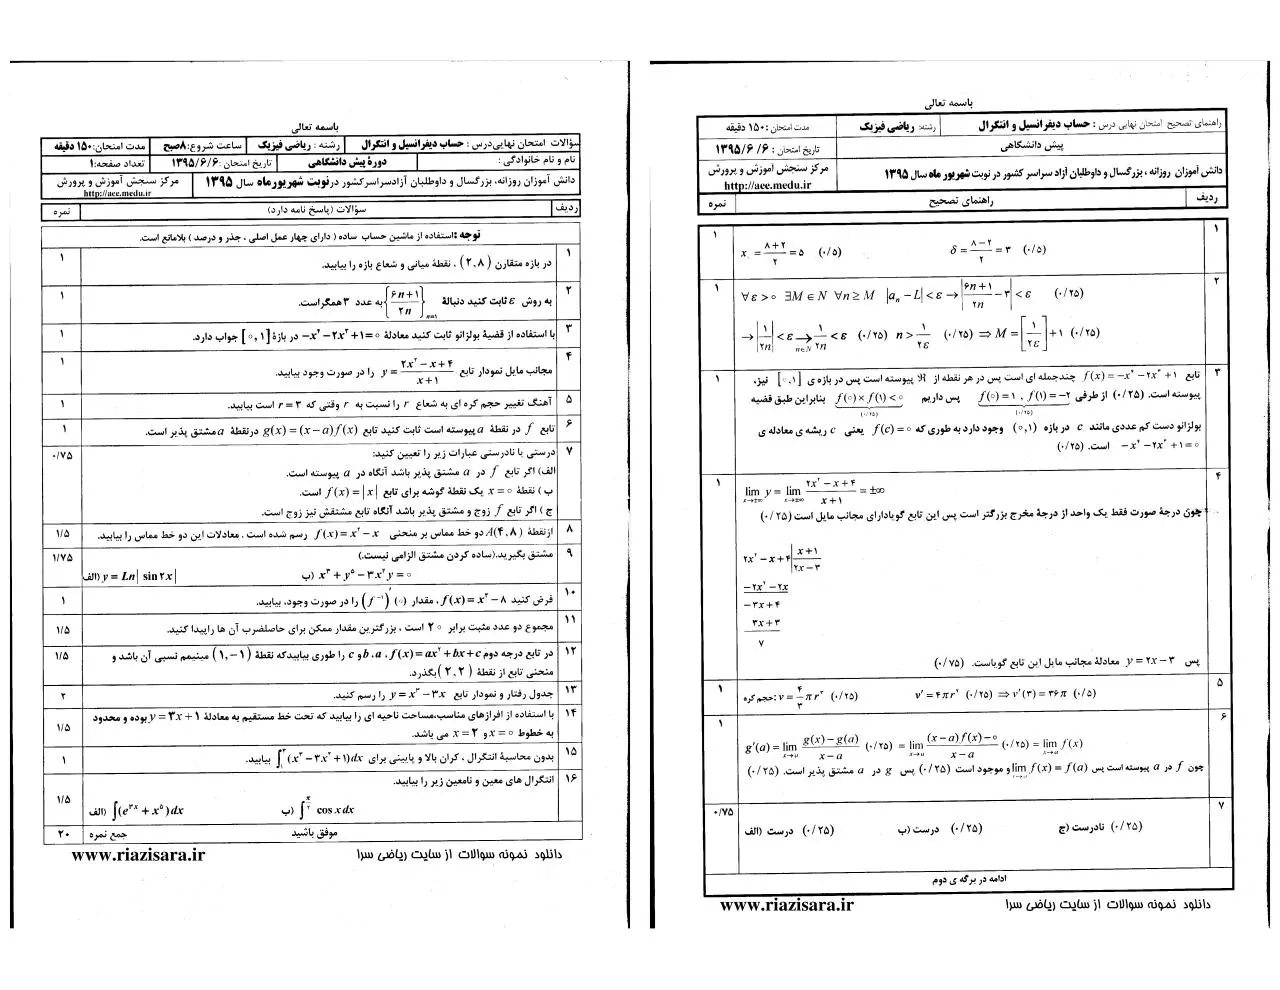 باسمه تعالی
سؤالات امتحان نهایی درس : حساب دیفرانسیل و انتگرال رشته : ریاضی فیزیک ساعت شروع:۸صبح مدت امتحان:۱۵۰ دقیقه
نام و نام خانوادگی : دورهٔ پیش دانشگاهی تاریخ امتحان :۱۳۹۵/۶/۶ تعداد صفحه:۱
دانش آموزان روزانه، بزرگسال و داوطلبان آزادسراسرکشور درنوبت شهریورماه سال ۱۳۹۵ مرکز سنجش آموزش و پرورش
http://aee.medu.ir
ردیف سؤالات (پاسخ نامه دارد) نمره
توجه :استفاده از ماشین حساب ساده ( دارای چهار عمل اصلی ، جذر و درصد ) بلامانع است.
۱ در بازه متقارن (۲,۸) ، نقطهٔ میانی و شعاع بازه را بیابید. ۱
۲ به روش ε ثابت کنید دنبالهٔ {(۶n+۱)/(۲n)} n=۱ به عدد ۳ همگراست. ۱
۳ با استفاده از قضیهٔ بولزانو ثابت کنید معادلهٔ −x⁴−۲x²+۱=۰ در بازهٔ [۰,۱] جواب دارد. ۱
۴ مجانب مایل نمودار تابع y=(۲x²−x+۴)/(x+۱) را در صورت وجود بیابید. ۱
۵ آهنگ تغییر حجم کره ای به شعاع r را نسبت به r وقتی که r=۳ است بیابید. ۱
۶ تابع f در نقطهٔ a پیوسته است ثابت کنید تابع g(x)=(x−a)f(x) درنقطهٔ a مشتق پذیر است. ۱
۷ درستی یا نادرستی عبارات زیر را تعیین کنید: ۰/۷۵
الف) اگر تابع f در a مشتق پذیر باشد آنگاه در a پیوسته است.
ب ) نقطهٔ x=۰ یک نقطهٔ گوشه برای تابع f(x)=|x| است.
ج ) اگر تابع f زوج و مشتق پذیر باشد آنگاه تابع مشتقش نیز زوج است.
۸ ازنقطهٔ A(۴,۸) دو خط مماس بر منحنی f(x)=x²−x رسم شده است . معادلات این دو خط مماس را بیابید. ۱/۵
۹ مشتق بگیرید.(ساده کردن مشتق الزامی نیست.) ۱/۷۵
الف) y=Ln|sin۲x| ب) x³+y⁵−۳x²y=۰
۱۰ فرض کنید f(x)=x³−۸ ، مقدار (f⁻¹)′(۰) را در صورت وجود، بیابید. ۱
۱۱ مجموع دو عدد مثبت برابر ۲۰ است ، بزرگترین مقدار ممکن برای حاصلضرب آن ها راپیدا کنید. ۱/۵
۱۲ در تابع درجه دوم f(x)=ax²+bx+c ، a ، b و c را طوری بیابیدکه نقطهٔ (۱,−۱) مینیمم نسبی آن باشد و ۱/۵
منحنی تابع از نقطهٔ (۲,۲) بگذرد.
۱۳ جدول رفتار و نمودار تابع y=x³−۳x را رسم کنید. ۲
۱۴ با استفاده از افرازهای مناسب،مساحت ناحیه ای را بیابید که تحت خط مستقیم به معادلهٔ y=۳x+۱ بوده و محدود ۱/۵
به خطوط x=۰ و x=۲ می باشد.
۱۵ بدون محاسبهٔ انتگرال ، کران بالا و پایینی برای dx(x³−۳x²+۱)∫ بیابید. ۱
۱۶ انتگرال های معین و نامعین زیر را بیابید. ۱/۵
الف) ∫(e³ˣ+x⁵)dx ب) ∫cos x dx
موفق باشید جمع نمره ۲۰
دانلود نمونه سوالات از سایت ریاضی سرا www.riazisara.ir
باسمه تعالی
راهنمای تصحیح امتحان نهایی درس : حساب دیفرانسیل و انتگرال رشته: ریاضی فیزیک مدت امتحان :۱۵۰ دقیقه
پیش دانشگاهی تاریخ امتحان : ۱۳۹۵/۶/۶
دانش آموزان روزانه ، بزرگسال و داوطلبان آزاد سراسر کشور در نوبت شهریور ماه سال ۱۳۹۵ مرکز سنجش آموزش و پرورش
http://aee.medu.ir
ردیف راهنمای تصحیح نمره
۱ x=(۸+۲)/۲=۵ (۰/۵) δ=(۸−۲)/۲=۳ (۰/۵) ۱
۲ ∀ε>۰ ∃M∈N ∀n≥M |aₙ−L|<ε→|(۶n+۱)/(۲n)−۳|<ε (۰/۲۵) ۱
→|۱/(۲n)|<ε → n∈N ۱/(۲n)<ε (۰/۲۵) n>۱/(۲ε) (۰/۲۵) ⇒M=[۱/(۲ε)]+۱ (۰/۲۵)
۳ تابع f(x)=−x⁴−۲x²+۱ چندجمله ای است پس در هر نقطه از ℜ پیوسته است پس در بازه ی [۰,۱] نیز، ۱
پیوسته است. (۰/۲۵) از طرفی f(۰)=۱ , f(۱)=−۲ (۰/۲۵) پس داریم f(۰)×f(۱)<۰ (۰/۲۵) بنابراین طبق قضیه
بولزانو دست کم عددی مانند c در بازه (۰,۱) وجود دارد به طوری که f(c)=۰ یعنی c ریشه ی معادله ی
−x⁴−۲x²+۱=۰ است. (۰/۲۵)
۴ lim y = lim (۲x²−x+۴)/(x+۱)=±∞ ۱
x→±∞ x→±∞
چون درجهٔ صورت فقط یک واحد از درجهٔ مخرج بزرگتر است پس این تابع گویادارای مجانب مایل است (۰/۲۵)
۲x²−x+۴ | x+۱
۲x−۳
−۲x²−۲x
−۳x+۴
۳x+۳
۷
پس y=۲x−۳ معادلهٔ مجانب مایل این تابع گویاست. (۰/۷۵)
۵ حجم کره: v=۴/۳ πr³ (۰/۲۵) v′=۴πr² (۰/۲۵) ⇒v′(۳)=۳۶π (۰/۵) ۱
۶ g′(a)=lim (g(x)−g(a))/(x−a) (۰/۲۵) =lim ((x−a)f(x)−۰)/(x−a) (۰/۲۵) =lim f(x) ۱
x→a x→a x→a
چون f در a پیوسته است پس lim f(x)=f(a) و موجود است (۰/۲۵) پس g در a مشتق پذیر است. (۰/۲۵)
۷ الف) درست (۰/۲۵) ب) درست (۰/۲۵) ج) نادرست (۰/۲۵) ۰/۷۵
ادامه در برگه ی دوم
دانلود نمونه سوالات از سایت ریاضی سرا www.riazisara.ir